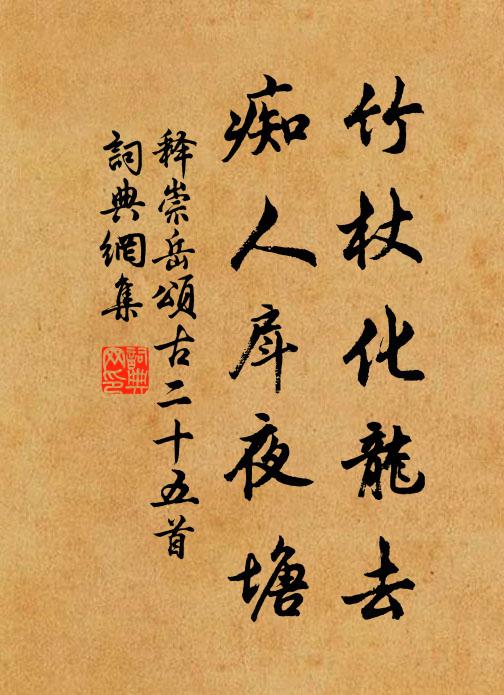 竹杖化龍去
痴人戽夜塘
释崇岳頌古二十五首
詞典網集
詞典网印